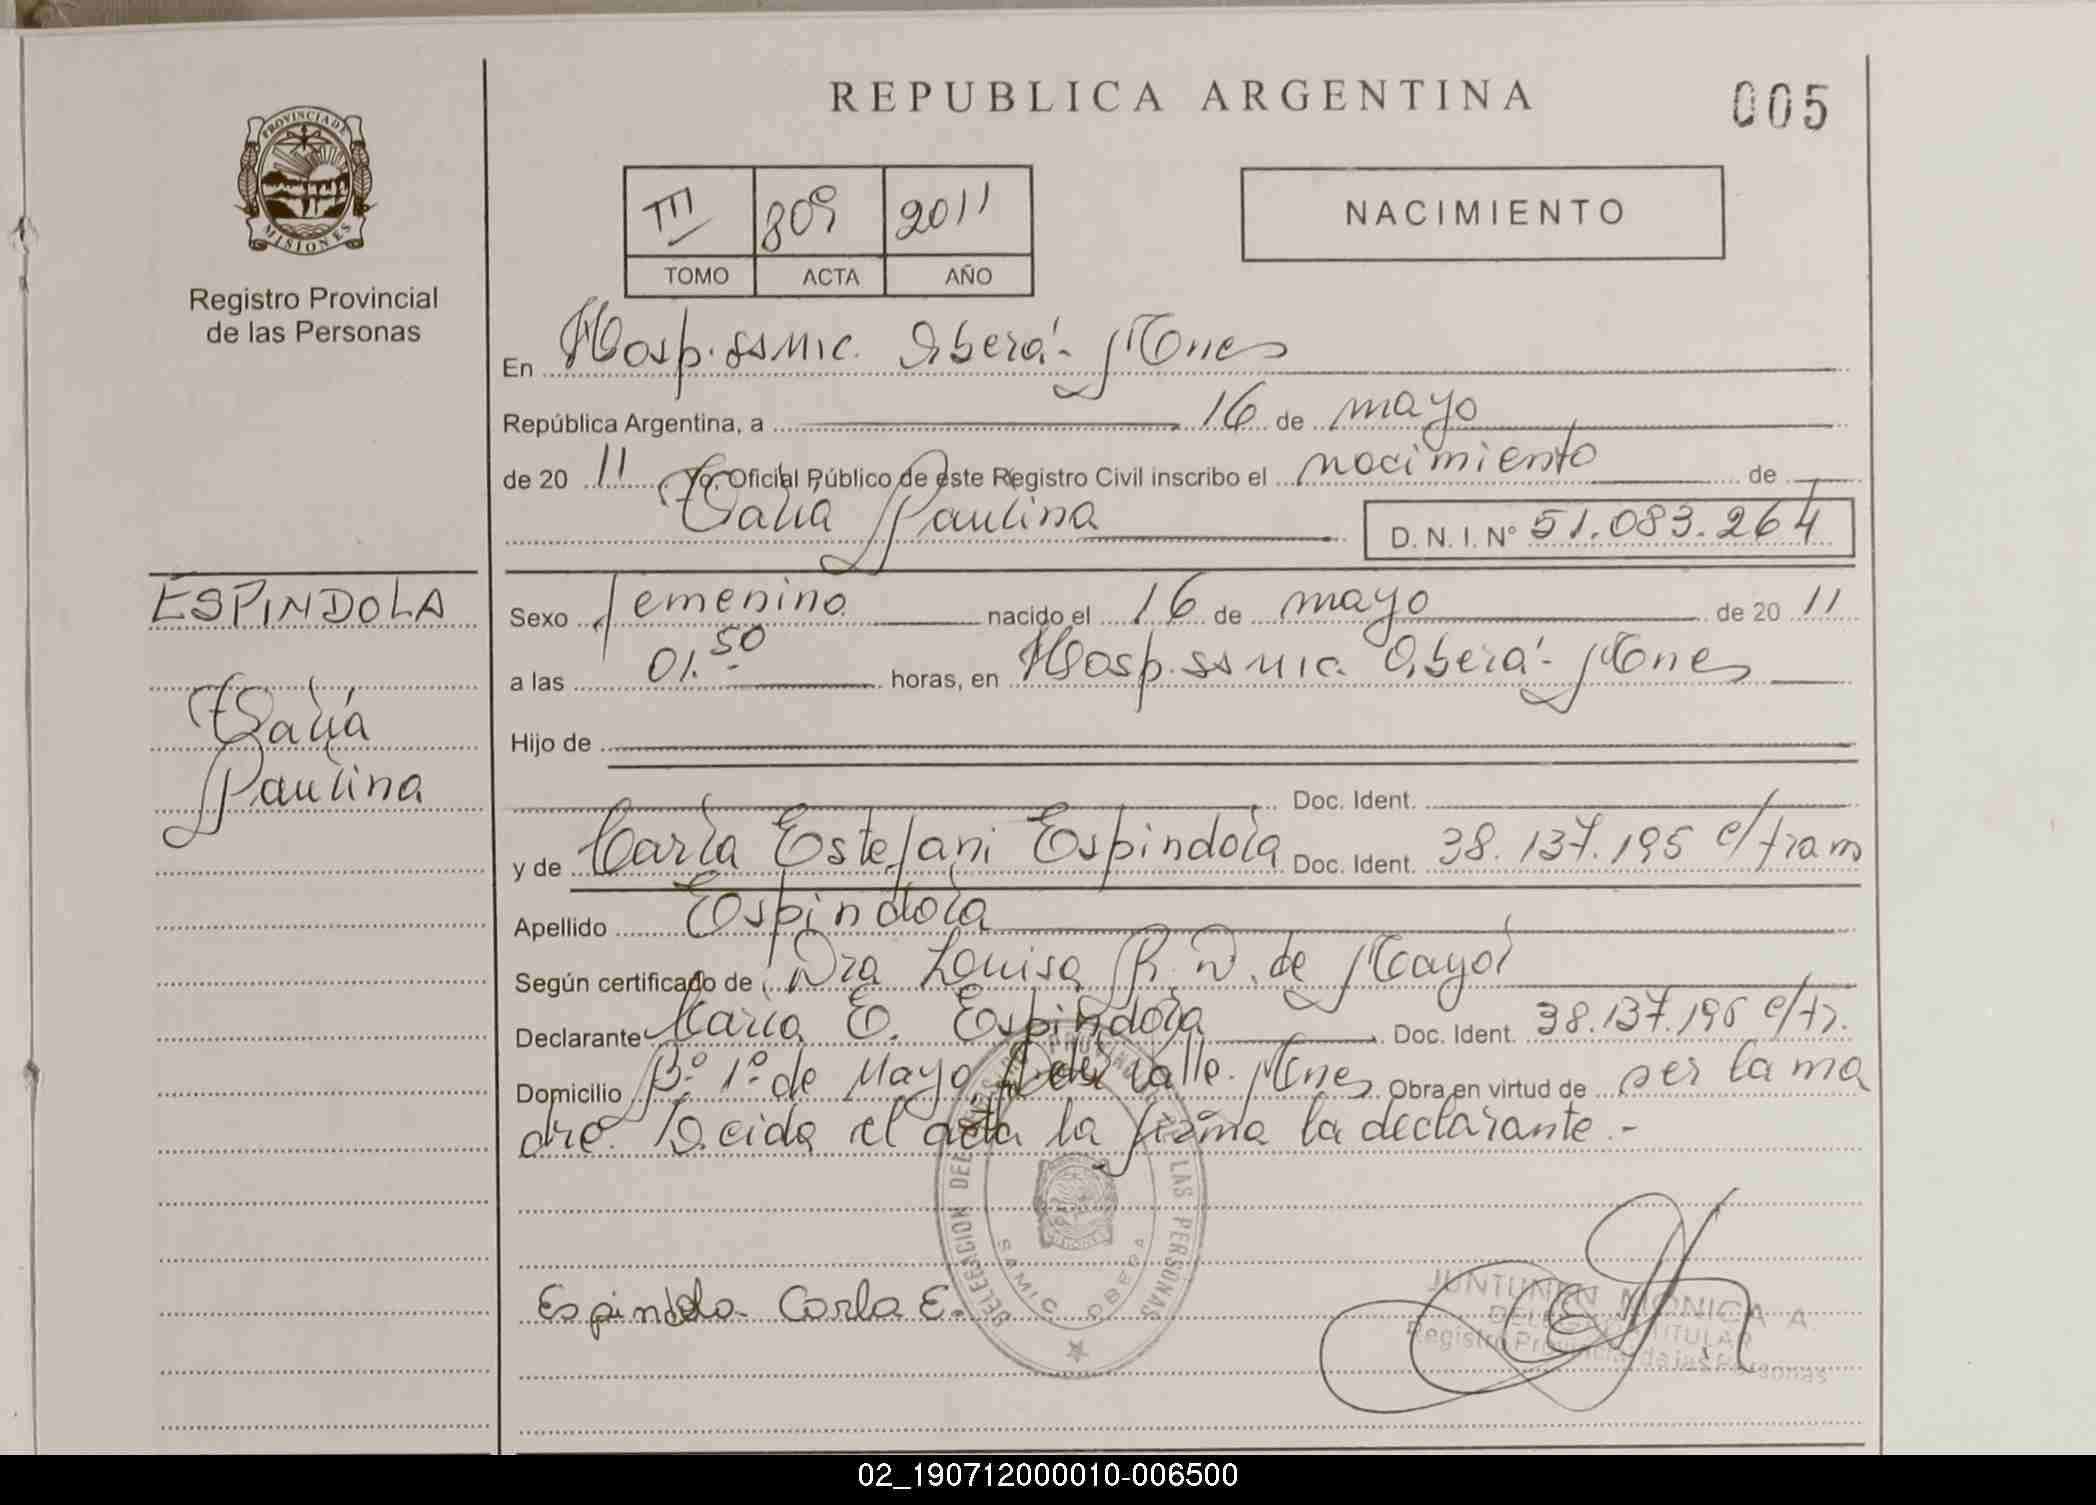 REPUBLICA ARGENTINA
005
PROVINCIA DE
MISIONES
Registro Provincial
de las Personas
III 809 2011
TOMO ACTA AÑO
NACIMIENTO
En Hosp. ssmic. Oberá - Mnes
República Argentina, a 16 de mayo
de 20 11 Yo, Oficial Público de este Registro Civil inscribo el nacimiento de
Talia Paulina
D. N. I. Nº 51.083.264
ESPINDOLA
Talia
Paulina
Sexo femenino nacido el 16 de mayo de 20 11
a las 01.50 horas, en Hosp. ssmic. Oberá - Mnes
Hijo de
Doc. Ident.
y de Carla Estefani Espindola Doc. Ident. 38.137.195 e/tram
Apellido Espindola
Según certificado de Dra Louisa R. D. de Mayol
Declarante Carla E. Espindola Doc. Ident. 38.137.195 e/tr.
Domicilio Bº 1º de Mayo Del Valle. Mnes Obra en virtud de ser la ma
dre. Leida el acta la firma la declarante.-
DELEGACION DE LAS PERSONAS
SAMIC OBERA
Espindola Carla E.
JUNTUNEN MONICA A.
TITULAR
Registro Provincial de las Personas
02_190712000010-006500